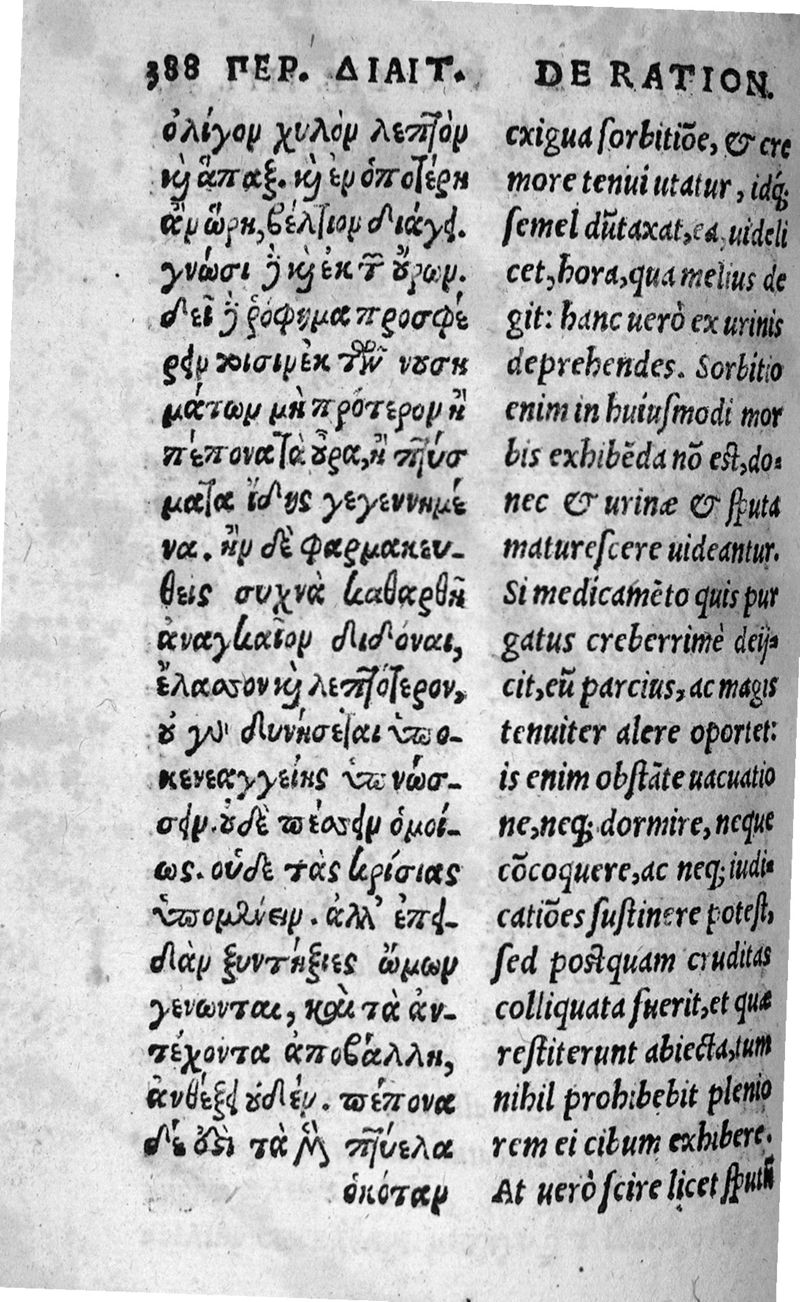 388 ΠΕΡ. ΔΙΑΙΤ.
ὀλίγον χυλὸν λεπτὸν
καὶ ἅπαξ. καὶ ἐν ὁποτέρῃ
ἂν ὥρῃ, βέλτιον διάγει.
γνώσῃ δὲ καὶ ἐκ τῶν οὔρων.
δεῖ δὲ ῥόφημα προσφέ
ρειν τοῖσιν ἐκ τῶν νουση
μάτων μὴ πρότερον ἢ
πέπονα τὰ οὖρα, ἢ πτύσ
ματα ἴδῃς γεγεννημέ
να. ἢν δὲ φαρμακευ-
θεὶς συχνὰ καθαρθῇ
ἀναγκαῖον διδόναι,
ἔλασσον καὶ λεπτότερον,
οὐ γὰρ δυνήσεται ὑπο-
κενεαγγείης ὑπνώσ-
σειν. οὐδὲ πέσσειν ὁμοί-
ως. οὐδὲ τὰς κρίσιας
ὑπομένειν. ἀλλ' ἐπει-
δὰν ξυντήξιες ὤμων
γενωνται, καὶ τὰ ἀν-
τέχοντα ἀποβάλλῃ,
ἀνθέξει οὐδέν. πέπονα
δέ ἐστι τὰ μὲν πτύελα
ὁκόταν
DE RATION.
exigua sorbitiõe, & cre
more tenui utatur, idq́;
semel dũtaxat, ea, uideli
cet, hora, qua melius de
git: hanc uerò ex urinis
deprehendes. Sorbitio
enim in huiusmodi mor
bis exhibẽda nõ est, do-
nec & urinæ & sputa
maturescere uideantur.
Si medicamẽto quis pur
gatus creberrimè deij-
cit, eũ parcius, ac magis
tenuiter alere oportet:
is enim obstãte uacuatio
ne, neq; dormire, neque
cõcoquere, ac neq; iudi-
catiões sustinere potest,
sed postquam cruditas
colliquata fuerit, et quæ
restiterunt abiecta, tum
nihil prohibebit plenio
rem ei cibum exhibere.
At uerò scire licet sputũ